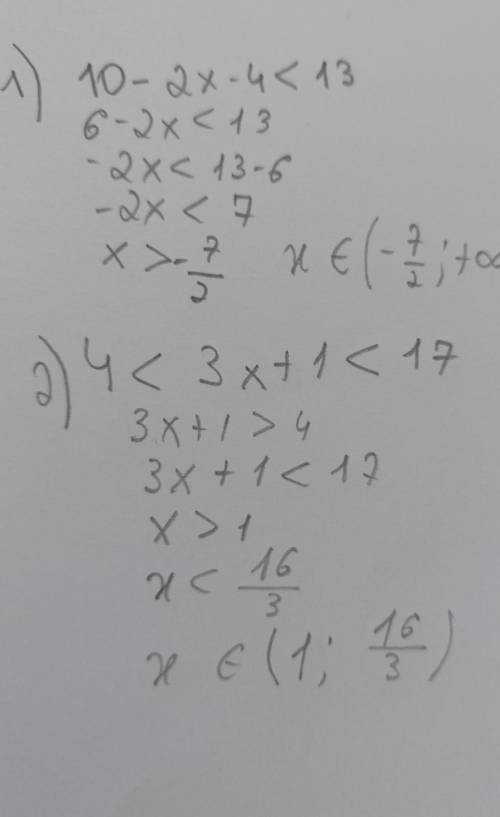 1) 10 - 2x - 4 < 13
6 - 2x < 13
-2x < 13 - 6
-2x < 7
x > -7/2 x ∈ (-7/2; +∞
2) 4 < 3x + 1 < 17
3x + 1 > 4
3x + 1 < 17
x > 1
x < 16/3
x ∈ (1; 16/3)